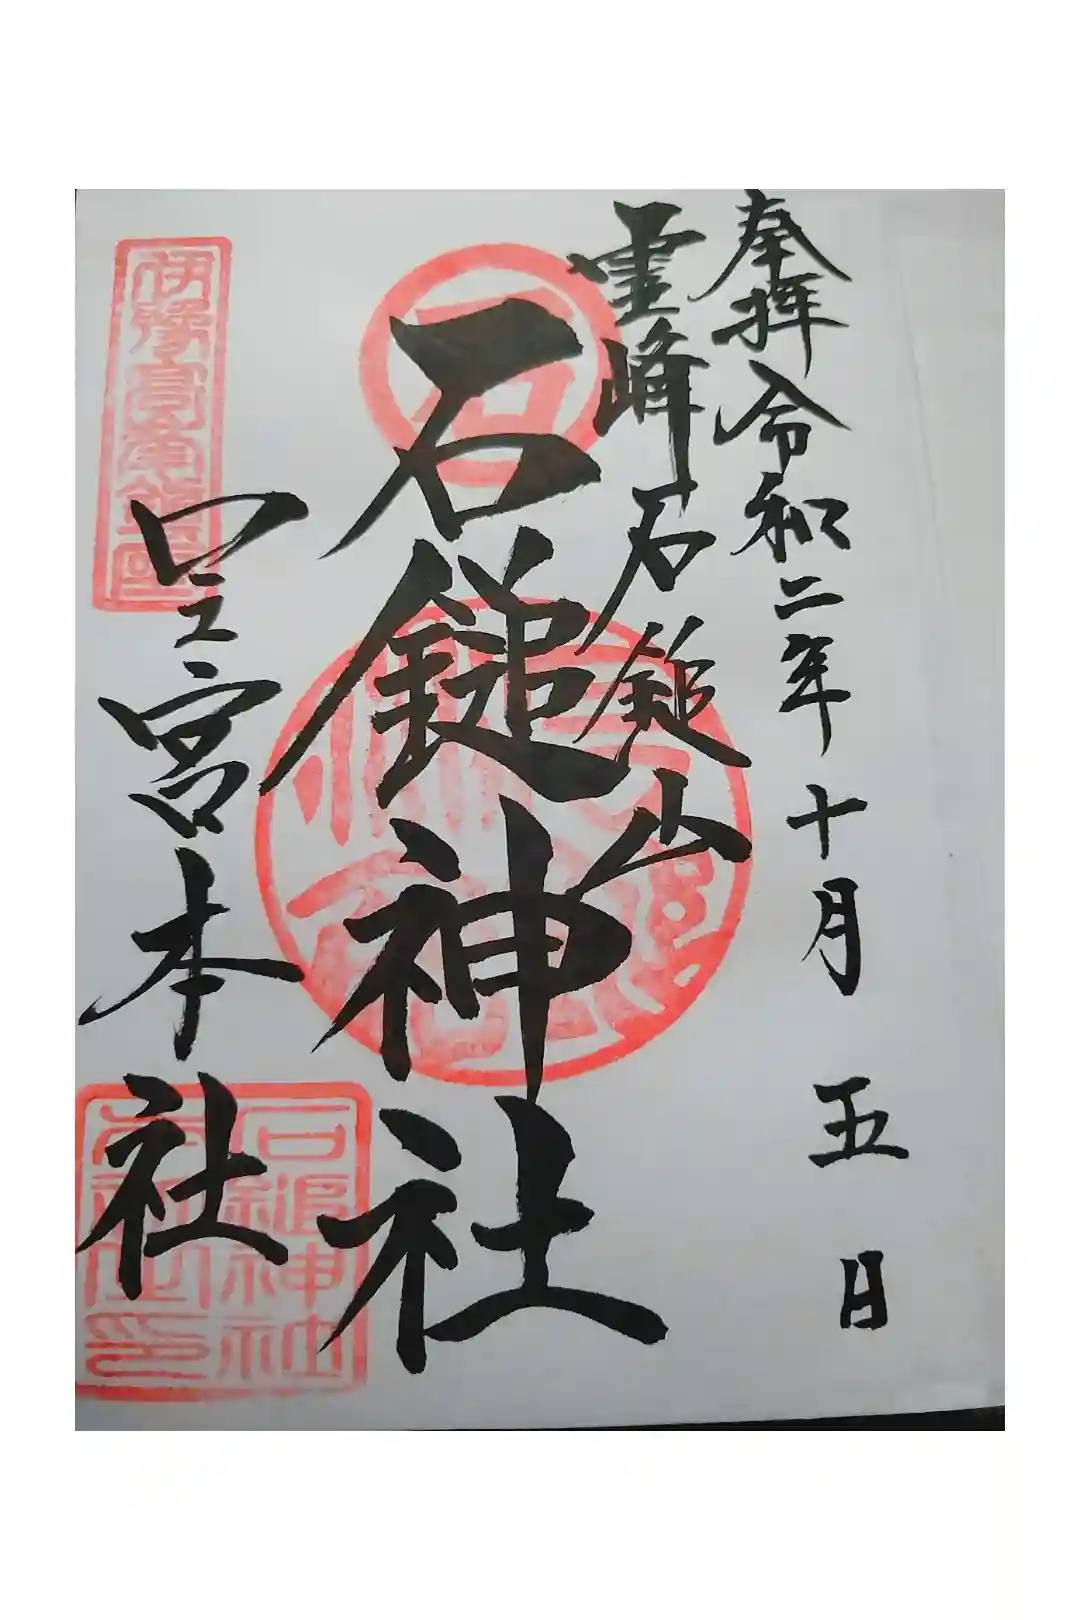 奉拝 令和二年十月五日
霊峰石鎚山
石
石鎚神社
口之宮本社
石鎚神社
本社之印